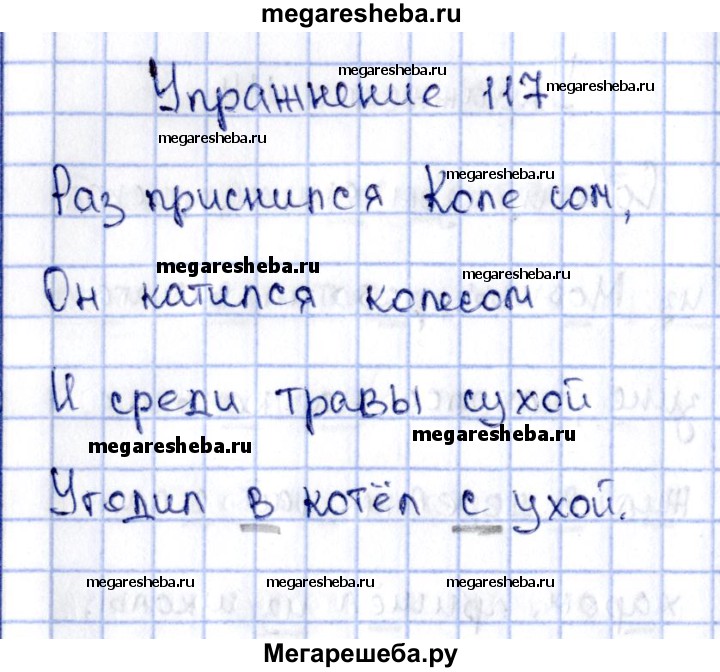 megaresheba.ru
megaresheba.ru
Упражнение 117.
megaresheba.ru
megaresheba.ru
megaresheba.ru
Раз приснился Коле сон,
megaresheba.ru
megaresheba.ru
Он катился колесом
И среди травы сухой
megaresheba.ru
megaresheba.ru
Угодил в котёл с ухой.
megaresheba.ru
megaresheba.ru
megaresheba.ru
Мегарешеба.ру